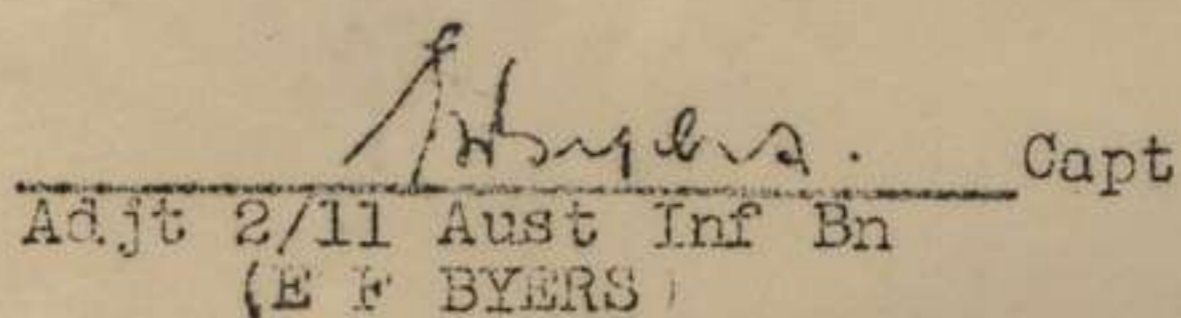 EFByers. Capt
Adjt 2/11 Aust Inf Bn
(E F BYERS)